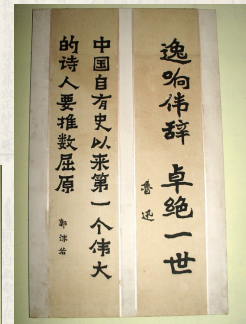 逸响伟辞 卓绝一世
鲁迅
中国自有史以来第一个伟大
的诗人要推数屈原
郭沫若